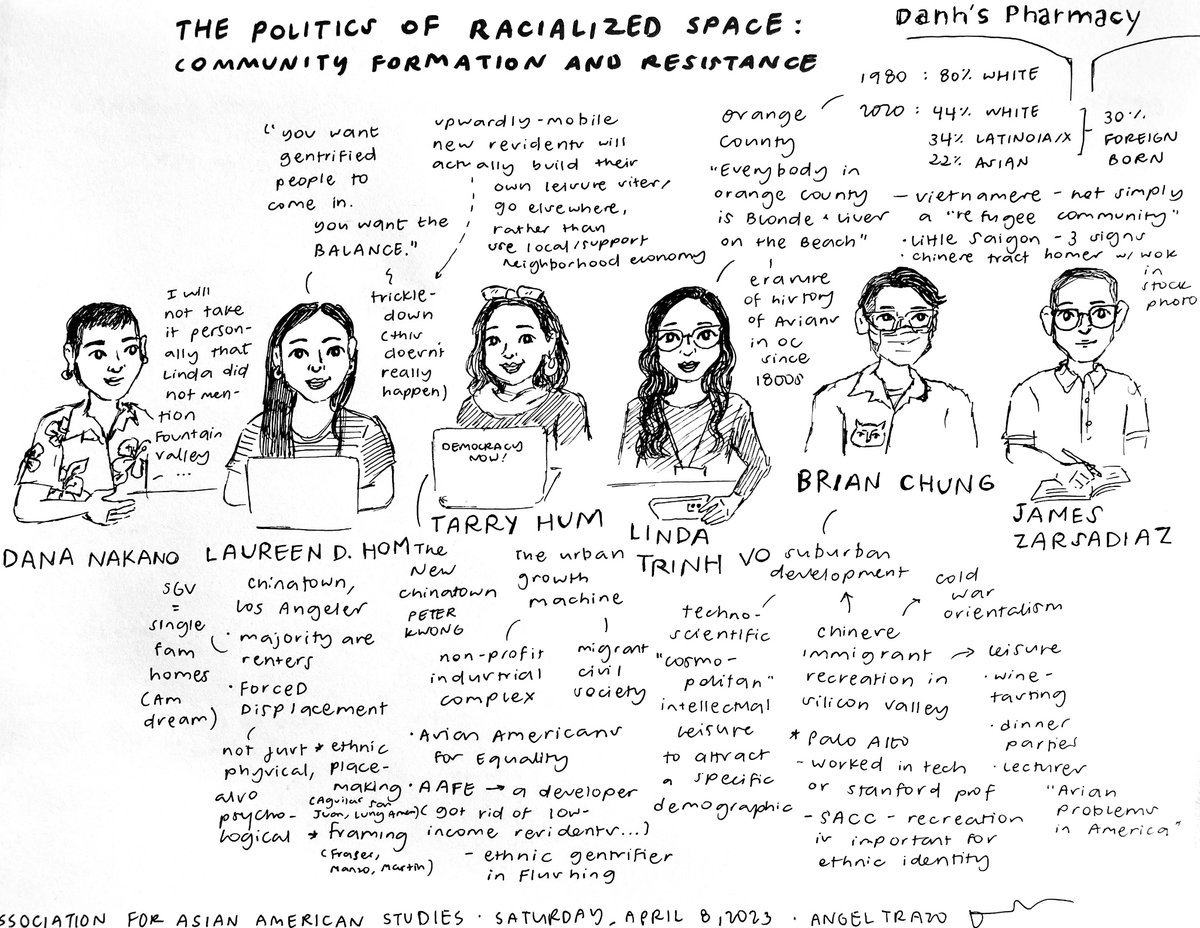 THE POLITICS OF RACIALIZED SPACE:
COMMUNITY FORMATION AND RESISTANCE
Danh's Pharmacy
1980 : 80% WHITE
2020 : 44% WHITE
34% LATINO/A/X
22% ASIAN
30%
FOREIGN
BORN
"you want
gentrified
people to
come in.
you want the
BALANCE."
upwardly-mobile
new residents will
actually build their
own leisure sites/
go elsewhere,
rather than
use local/support
neighborhood economy
trickle-
down
(this
doesn't
really
happen)
orange
county
"Everybody in
orange county
is Blonde + Lives
on the Beach"
erasure
of history
of Asians
in OC
since
1800s
- vietnamese - not simply
a "refugee community"
· Little Saigon - 3 signs
· chinese tract homes w/ wok
in
stock
photo
I will
not take
it person-
ally that
Linda did
not men-
tion
Fountain
valley
...
DEMOCRACY
NOW!
DANA NAKANO
LAUREEN D. HOM
TARRY HUM
LINDA
TRINH VO
BRIAN CHUNG
JAMES
ZARSADIAZ
SGV
=
single
fam
homes
(Am
dream)
chinatown,
Los Angeles
· majority are
renters
· Forced
Displacement
not just
physical,
also
psycho-
logical
* ethnic
place-
making
(Aguilar San
Juan, Lung Amam)
* framing
(Fraser,
Manzo, Martin)
The
New
chinatown
PETER
KWONG
The urban
growth
machine
non-profit
industrial
complex
migrant
civil
society
· Asian Americans
for Equality
· AAFE → a developer
(got rid of low-
income residents...)
- ethnic gentrifier
in Flushing
suburban
development
techno-
scientific
"cosmo-
politan"
intellectual
leisure
to attract
a specific
demographic
cold
war
orientalism
chinese
immigrant
recreation in
silicon valley
* Palo Alto
- worked in tech
or stanford prof
- SACC - recreation
is important for
ethnic identity
→ leisure
· wine-
tasting
· dinner
parties
· lectures
"Asian
problems
in America"
SSOCIATION FOR ASIAN AMERICAN STUDIES · SATURDAY, APRIL 8, 2023 · ANGEL TRAZO